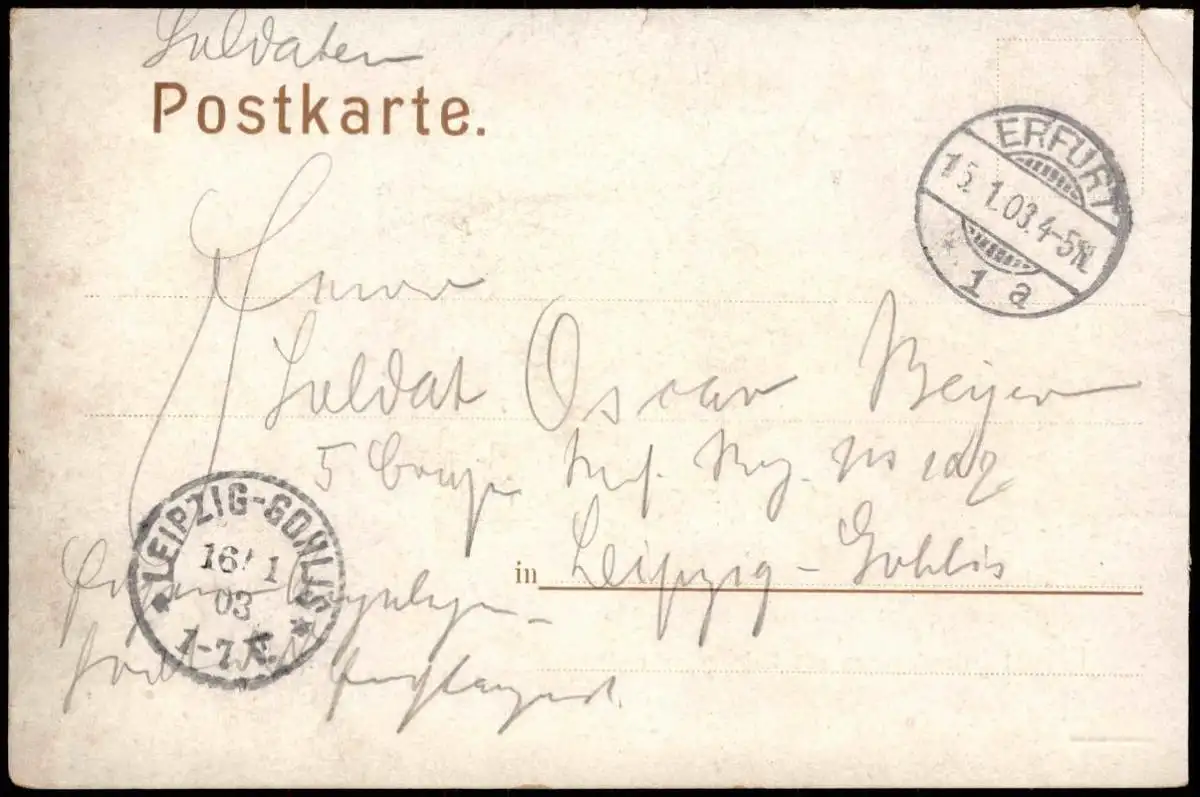 Soldaten
Postkarte.
ERFURT
15.1.03.4-5N.
* 1 a
Herrn
Soldat Oscar Beyer
5 Comp. Inf. Reg. No 107
in Leipzig-Gohlis
LEIPZIG-GOHLIS
16/1
03
1-7 V.